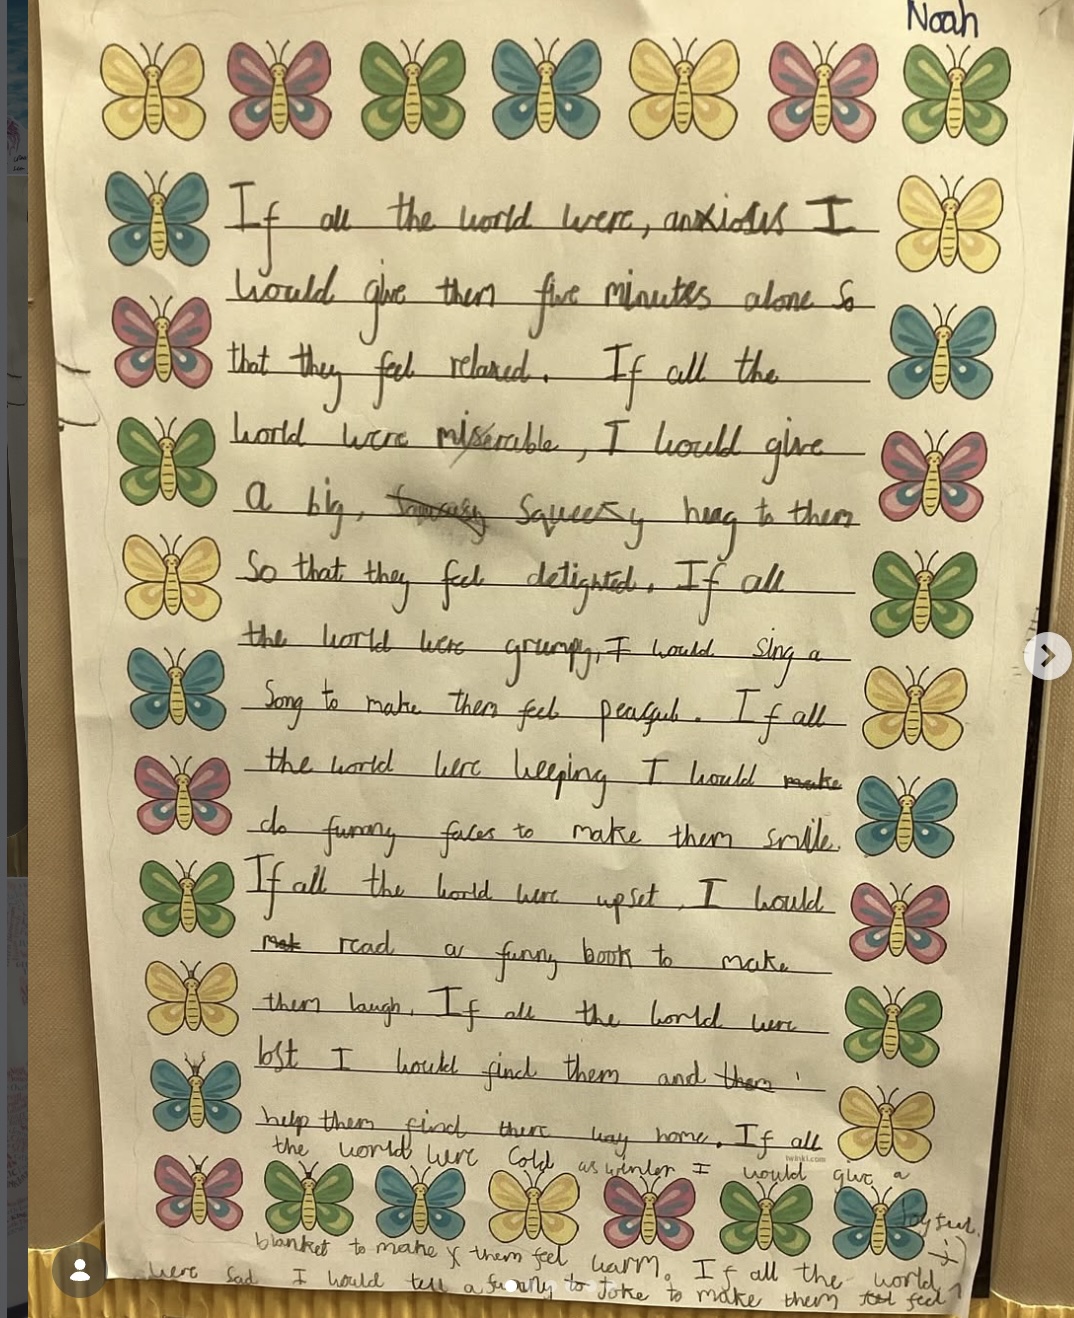 Noah
If all the world were, anxious I
would give them five minutes alone so
that they feel relaxed. If all the
world were miserable, I would give
a big, squeezy hug to them
so that they feel delighted. If all
the world were grumpy, I would sing a
song to make them feel peaceful. If all
the world were weeping I would make
do funny faces to make them smile.
If all the world were upset, I would
read a funny book to make
them laugh. If all the world were
lost I would find them and them
help them find there way home. If all
twinkl.com
the world were cold as winter I would give a
blanket to make them feel warm. If all the world
were sad I would tell a funny to joke to make them feel
joyful.